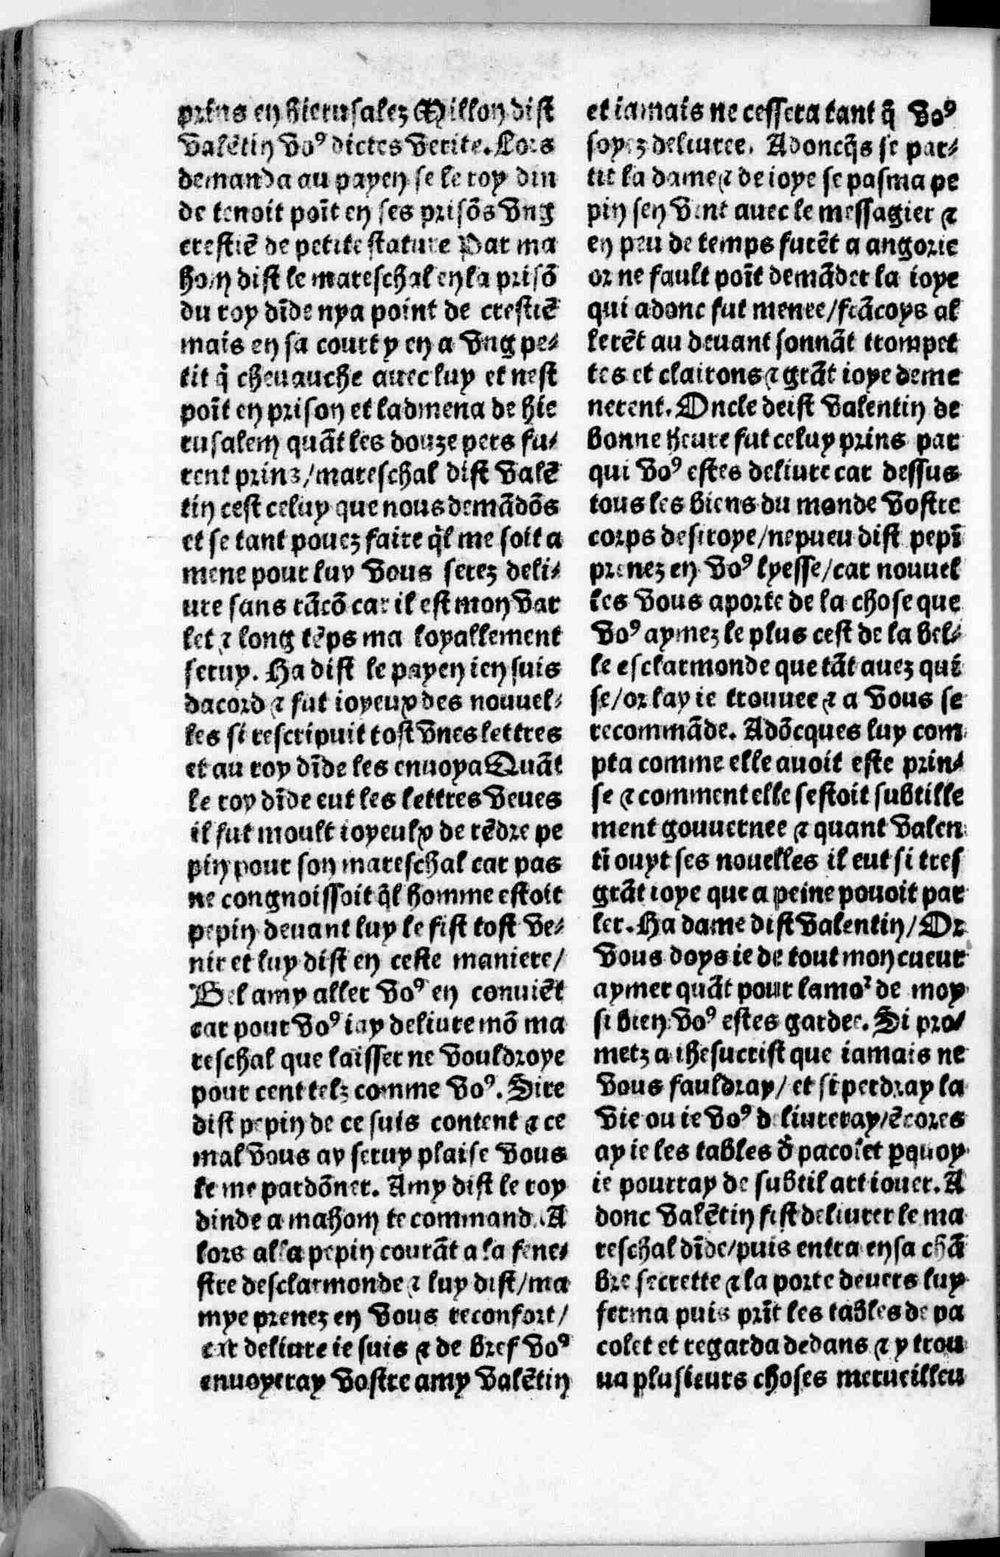 prins en hierusalez Millon dist
valētin voꝰ dictes verite. Lors
demanda au payen se le roy din
de tenoit poīt en ses prisōs vng
crestiē de petite stature Par ma
hom dist le mareschal en la prisō
du roy dīde nya point de crestiē
mais en sa court y en a vng pe⸗
tit q̄ chevauche avec luy et nest
poīt en prison et ladmena de hie
rusalem quāt les douze pers fu⸗
rent prinz/mareschal dist valē
tin cest celuy que nous demādōs
et se tant pouez faire q̄l me soit a
mene pour luy vous serez deli⸗
ure sans rācō car il est mon var
let ⁊ long tēps ma loyallement
seruy. Ha dist le payen ien suis
dacord ⁊ fut ioyeux des nouuel⸗
les si rescripuit tost vnes lettres
et au roy dīde les enuoya Quāt
le roy dīde eut les lettres veues
il fut moult ioyeulx de rēdre pe
pin pour son mareschal car pas
ne congnoissoit q̄l homme estoit
pepin deuant luy le fist tost ve⸗
nir et luy dist en ceste maniere/
Bel amy aller voꝰ en conuiēt
car pour voꝰ iay deliure mō ma
reschal que laisser ne vouldroye
pour cent telz comme voꝰ. Sire
dist pepin de ce suis content ⁊ ce
mal vous ay seruy plaise vous
le me pardōner. Amy dist le roy
dinde a mahom te command. A
lors alla pepin courāt a la fene⸗
stre desclarmonde ⁊ luy dist/ma
mye prenez en vous reconfort/
car deliure ie suis ⁊ de bref voꝰ
enuoyeray vostre amy valētin
et iamais ne cessera tant q̄ voꝰ
soyez deliuree. Adoncq̄s se par⸗
tit la dame ⁊ de ioye se pasma pe
pin sen vint auec le messagier ⁊
en peu de temps furēt a angorie
or ne fault poīt demāder la ioye
qui adonc fut menee/frācoys al
lerēt au deuant sonnāt trompet
tes et clairons ⁊ grāt ioye deme
nerent. Oncle deist valentin de
bonne heure fut celuy prins par
qui voꝰ estes deliure car dessus
tous les biens du monde vostre
corps desiroye/nepueu dist pepī
prenez en voꝰ lyesse/car nouuel
les vous aporte de la chose que
voꝰ aymez le plus cest de la bel⸗
le esclarmonde que tāt auez qui
se/or lay ie trouuee ⁊ a vous se
recommāde. Adōcques luy com
pta comme elle auoit este prin⸗
se ⁊ comment elle sestoit subtille
ment gouuernee ⁊ quant valen
tī ouyt ses nouelles il eut si tres
grāt ioye que a peine pouoit par
ler. Ha dame dist valentin/Or
vous doys ie de tout mon cueur
aymer quāt pour lamoꝛ de moy
si bien voꝰ estes gardee. Si pro⸗
metz a ihesucrist que iamais ne
vous fauldray/et si perdray la
vie ou ie voꝰ deliureray/ēcores
ay ie les tables ð pacolet ꝑquoy
ie pourray de subtil art iouer. A
donc valētin fist deliurer le ma
reschal dīde/puis entra en sa chā
bre secrette ⁊ la porte deuers luy
ferma puis prīt les tables de pa
colet et regarda dedans ⁊ y trou
ua plusieurs choses merueilleu